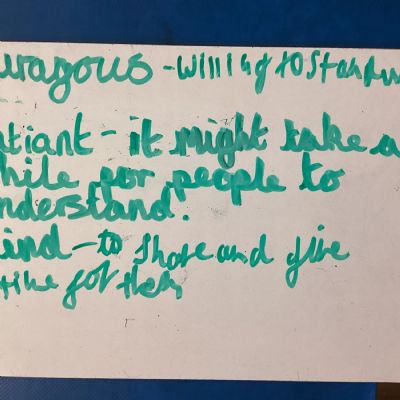 uragous - willing to stand u
atiant - it might take a
hile for people to
nderstand.
ind - to share and give
time for them